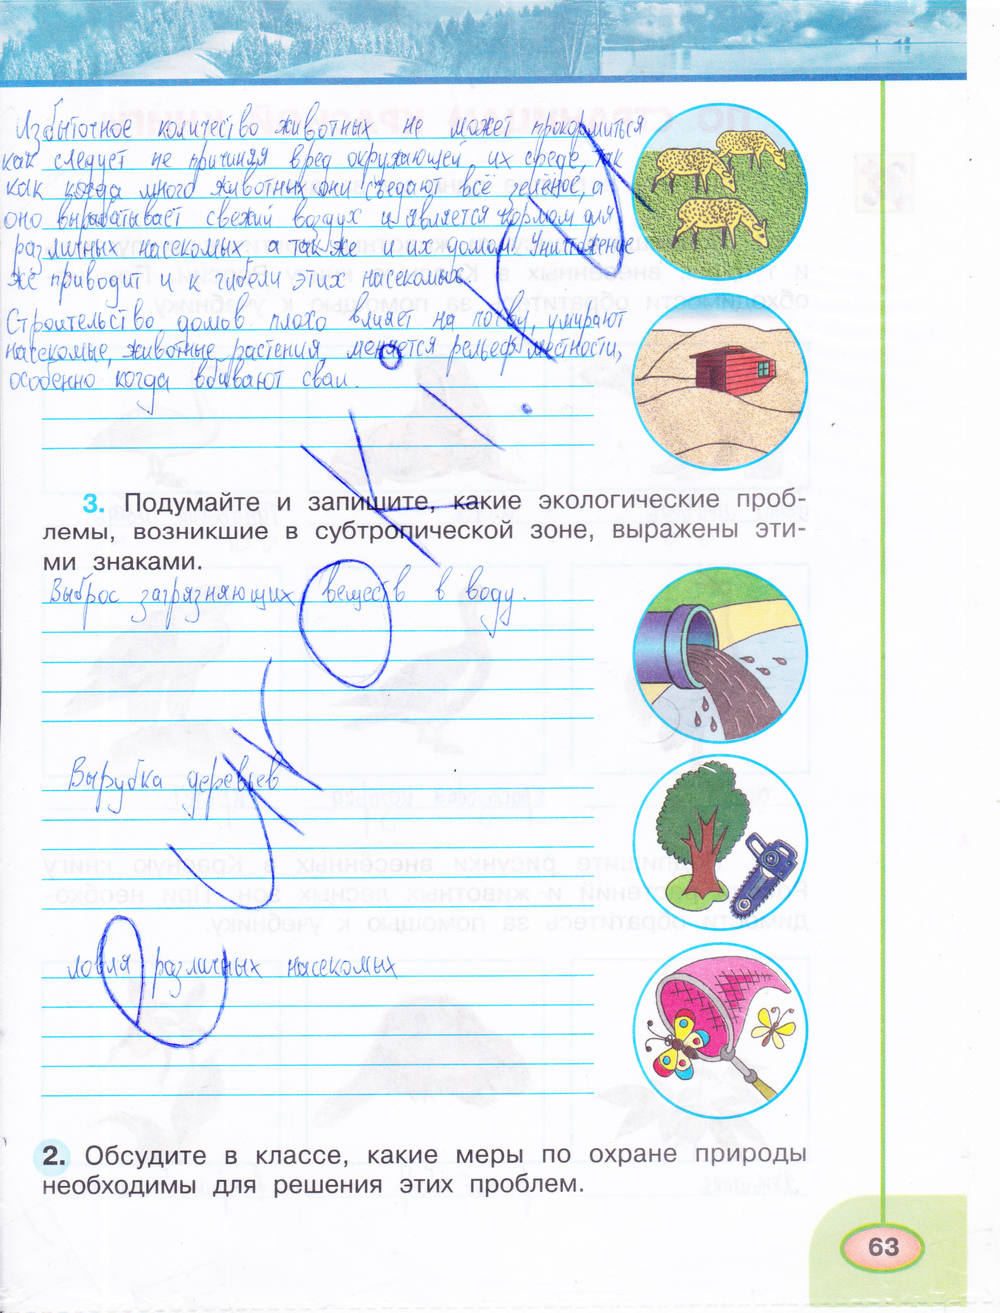 Избыточное количество животных не может прокормиться
как следует не причиняя вред окружающей их среде, так
как когда много животных они съедают всё зелёное, а
оно вырабатывает свежий воздух и является кормом для
различных насекомых а так же и их домом. Уничтожение
же приводит и к гибели этих насекомых.
Строительство домов плохо влияет на почву, умирают
насекомые, животные растения, меняется рельеф местности,
особенно когда вбивают сваи.
3. Подумайте и запишите, какие экологические проб-
лемы, возникшие в субтропической зоне, выражены эти-
ми знаками.
Выброс загрязняющих веществ в воду.
Вырубка деревьев
ловля различных насекомых
2. Обсудите в классе, какие меры по охране природы
необходимы для решения этих проблем.
63